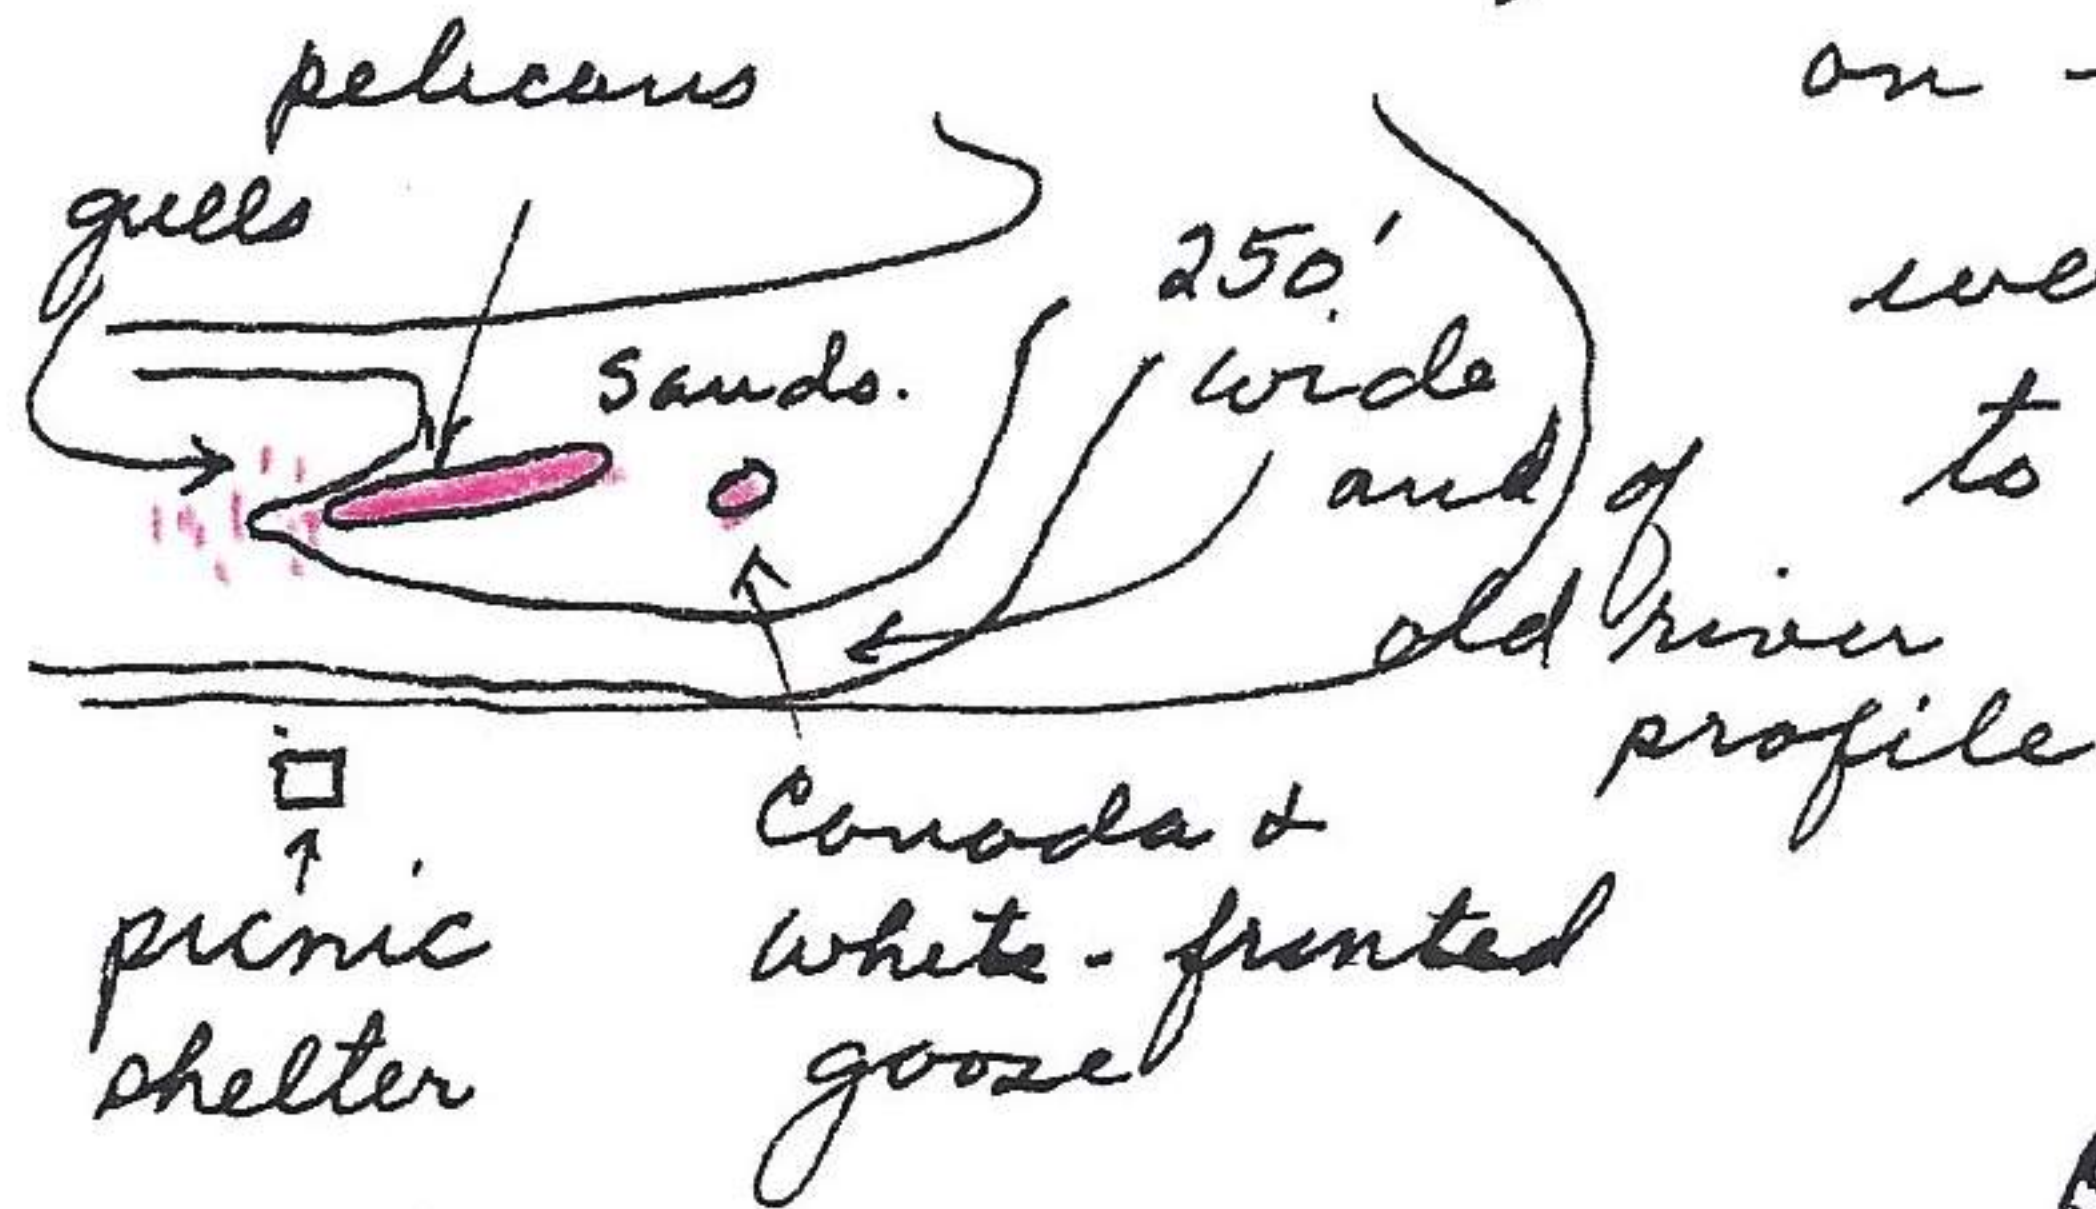 pelicans
gulls
sands.
250'
wide
and of
old river
profile
picnic
shelter
Canada &
white-fronted
goose
on -
we
to